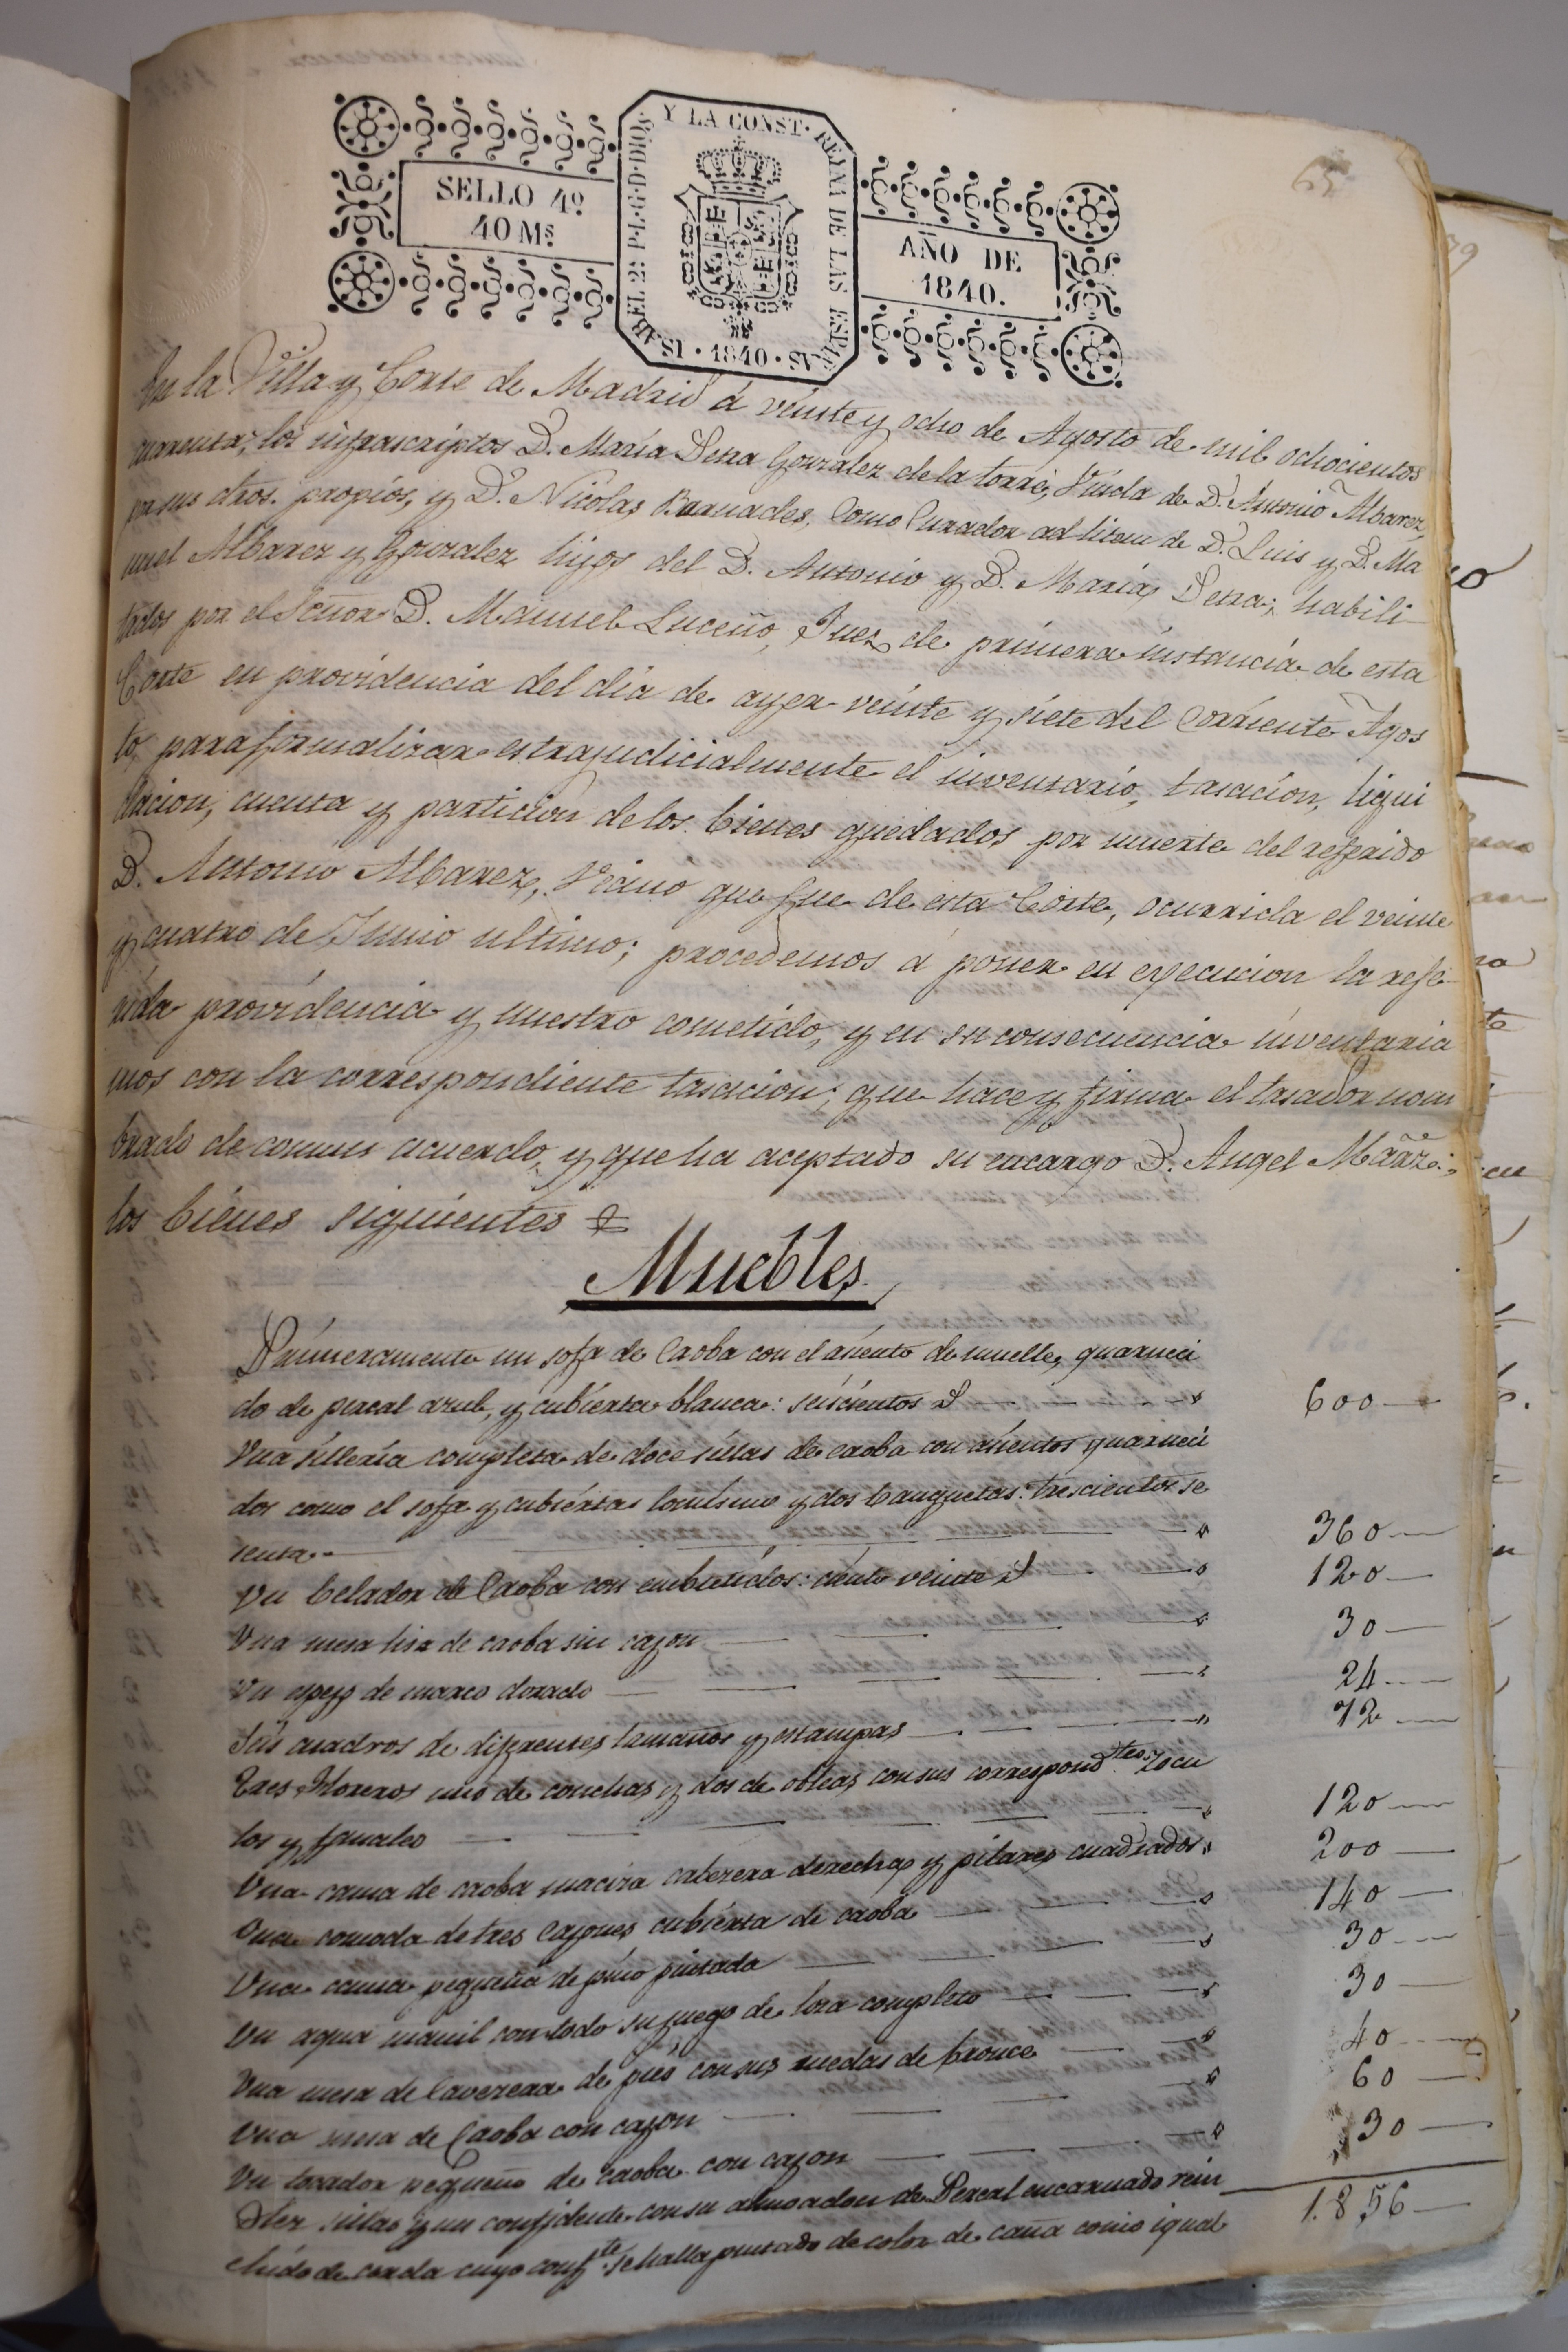 65
SELLO 4º
40 Ms
ISABEL 2ª P.L.G.D.DIOS Y LA CONST. REYNA DE LAS ESPAÑAS
· 1840 ·
AÑO DE
1840.
En la Villa y Corte de Madrid á veinte y ocho de Agosto de mil ochocientos
cuarenta; los infrascriptos D. María Pena Gonzalez de la torre, Viuda de D. Antonio Albarez,
por sus dros. propios, y D. Nicolas Barnades, como Curador ad litem de D. Luis y D. Ma
nuel Albarez y Gonzalez hijos del D. Antonio y D. María Pena; habili
tados por el Señor D. Manuel Luceño, Juez de primera instancia de esta
Corte en providencia del dia de ayer veinte y siete del Corriente Agos
to, para formalizar estrajudicialmente el inventario, tasacion, liqui
dacion, cuenta y particion de los bienes quedados por muerte del referido
D. Antonio Albarez, Vecino que fue de esta Corte, ocurrida el veinte
y cuatro de Junio ultimo; procedemos á poner en egecucion la refe
rida providencia y nuestro cometido, y en su consecuencia inventaria
mos con la correspondiente tasacion, que hace y firma el tasador nom
brado de comun acuerdo, y que ha aceptado su encargo D. Angel
los bienes siguientes
Muebles
Primeramente un sofa de Caoba con el asiento de muelle, guarneci
do de percal azul, y cubierta blanca: seiscientos 600
Una sillería completa de doce sillas de caoba con asientos guarneci
dos como el sofa y cubiertas lomismo y dos banquetas: trescientos se
senta 360
Un belador de Caoba con embutidos: ciento veinte 120
Una mesa lisa de caoba sin cajon 30
Un espejo de marco dorado 24
Seis cuadros de diferentes tamaños y estampas 72
Tres floreros uno de conchas y dos de obleas con sus correspond.tes zocu
los y fanales 120
Una cama de caoba maciza cabezera derecha y pilares cuadrados 200
Una comoda de tres Cajones cubierta de caoba 140
Una cama pequeña de pino pintada 30
Un agua manil con todo su juego de loza completo 30
Una mesa de Cavezera de pies con sus ruedas de bronce 40
Una mesa de Caoba con cajon 60
Un tocador pequeño de caoba con cajon 30
Diez sillas y un confidente con su almoadon de Percal encarnado rein 1.856
chido de cerda cuyo conf.te se halla pintado de color de caña como igual